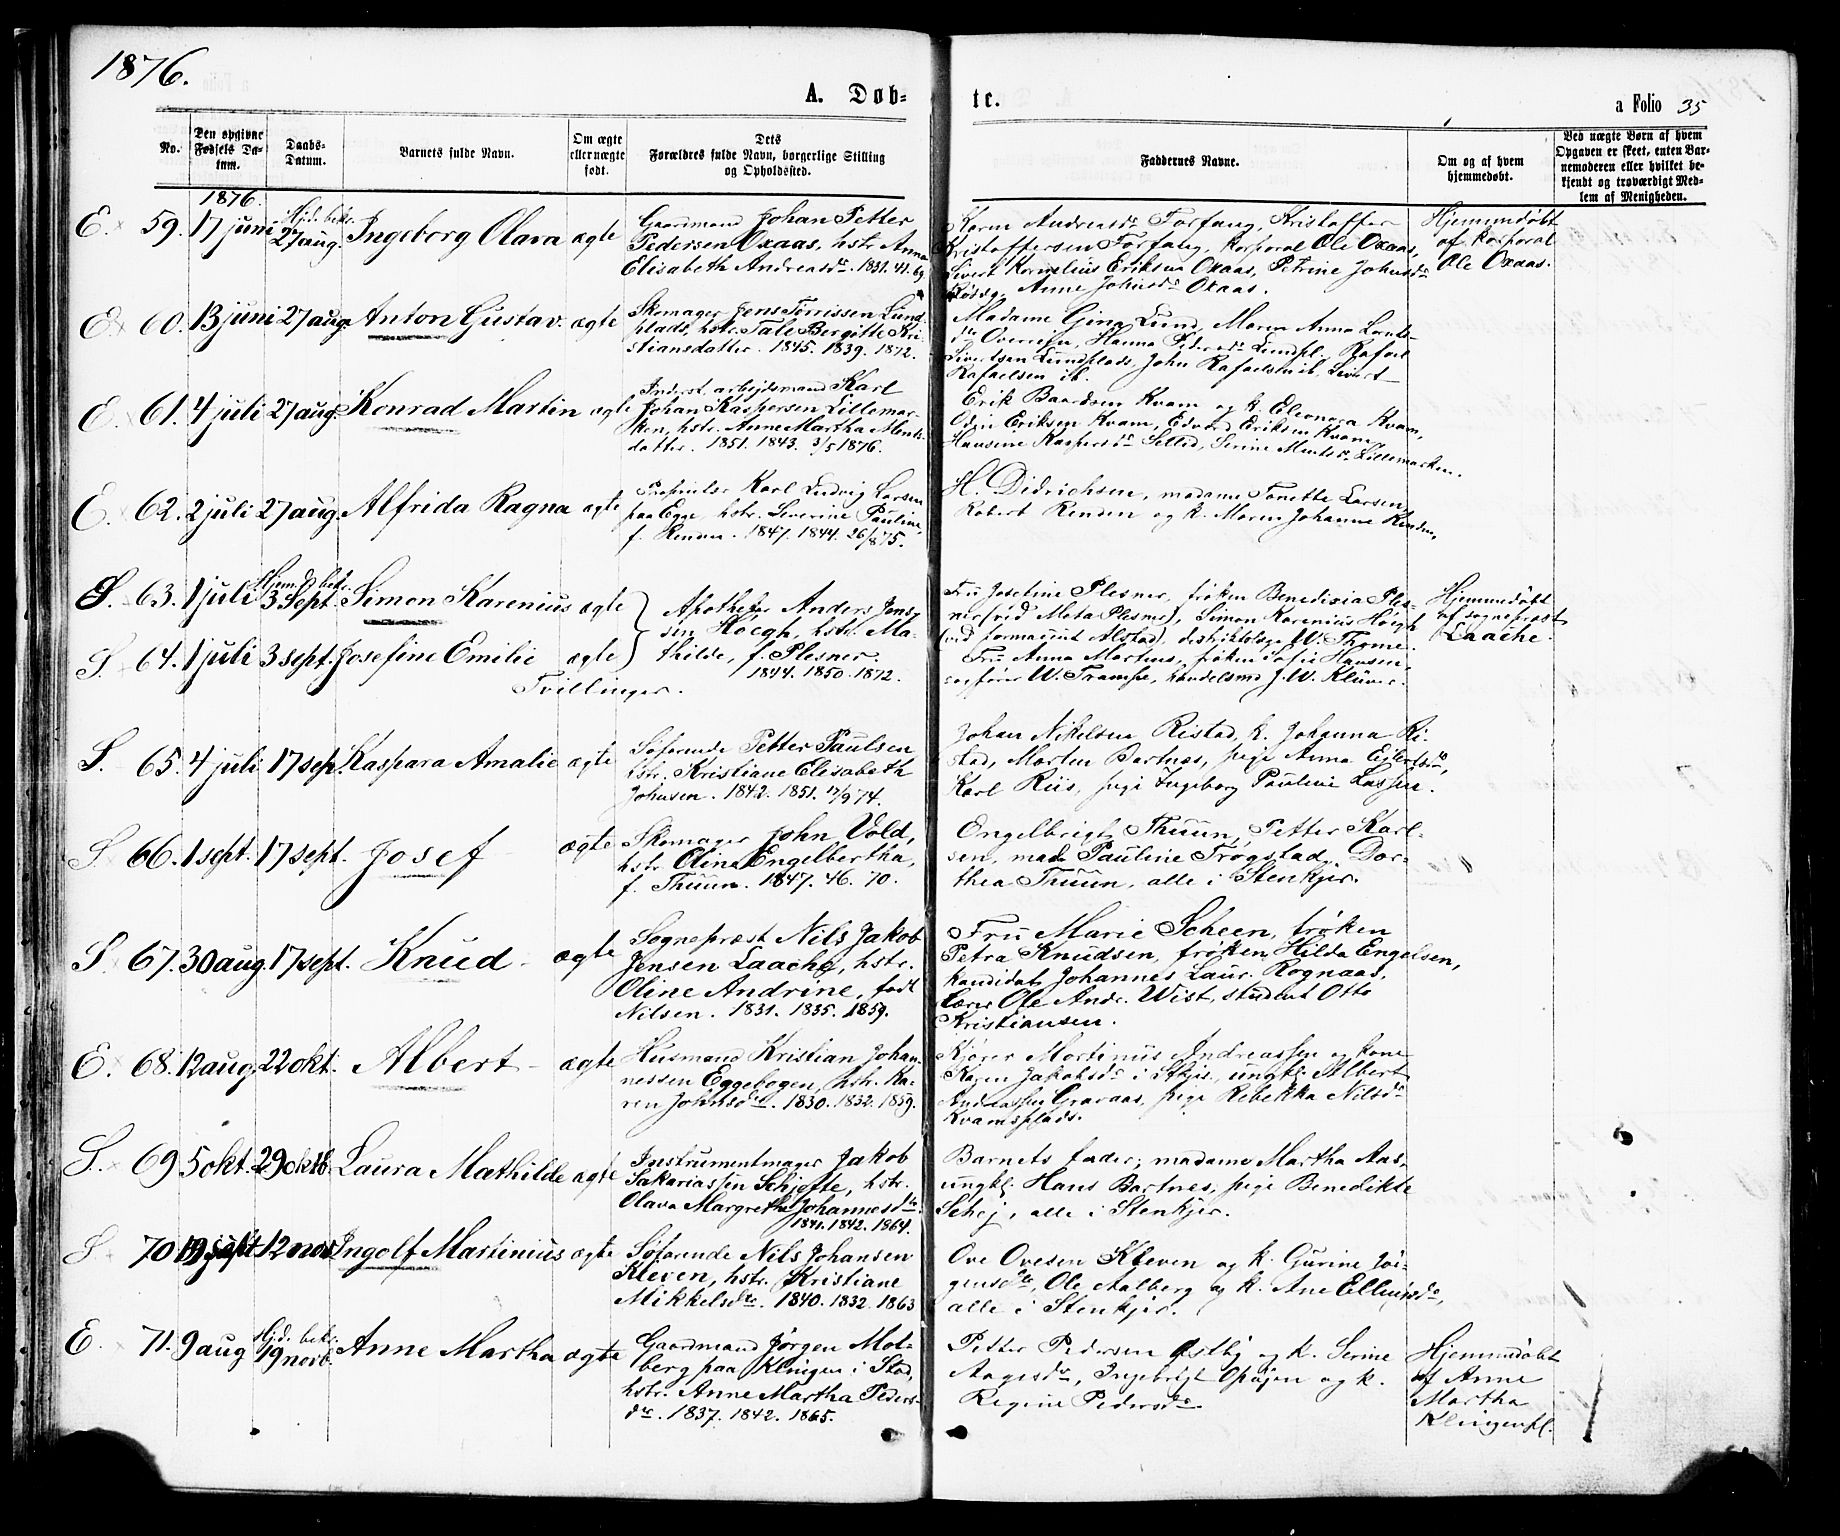 1876.
A. Døb-
te.
a Folio 35
No.
Den opgivne Fødsels Da-tum.
Daabs-Datum.
Barnets fulde Navn.
Om ægte eller uægte født.
Dets Forældres fulde Navn, borgerlige Stilling og Opholdssted.
Faddernes Navne.
Om og af hvem hjemmedøbt.
Ved uægte Børn af hvem Opgaven er skeet, enten Bar-nemoderen eller hvilket be-kjendt og troværdigt Med-lem af Menigheden.
1876.
E. 59. 17 juni Hjd. bekr. 27 aug. Ingeborg Olava ægte
Gaardmand Johan Petter
Pedersen Oxaas, hstr. Anna
Elisabeth Andreasdr. 1831. 41. 69
Karen Andreasdr. Forfang, Kristoffer
Kristoffersen Forfang, Korporal Ole Oxaas,
Sivert Kornelius Eriksen Oxaas, Petrine Johnsdr.
Anne Johnsdr. Oxaas.
Hjemmedøbt
af korporal
Ole Oxaas.
E. 60. 13 juni 27 aug. Anton Gustav. ægte
Skomager Jens Torrissen Lund
plads, hstr. Tale Bergitte Kri-
stiansdatter. 1845. 1839. 1872.
Madame Gina Lund, Maren Anna Lornts-
dr. Overrein, Hanna Pedersdr. Lundpl., Rafael
Sivertsen Lundsplads, John Rafaelsen ib. Sivert
Rafaelsen ib.
E. 61. 4 juli 27 aug. Konrad Martin ægte
Inderst. arbejdsmand Karl
Johan Kaspersen Lillemar-
ken, hstr. Anne Martha Ments-
datter. 1851. 1843. 3/5 1876.
Erik Baardsen Kvam og k. Eleonora Kvam,
Odin Eriksen Kvam, Edvard Eriksen Kvam,
Hansine Kaspersdr. Selled, Serine Mentsdr. Lillemarken.
E. 62. 2 juli 27 aug. Alfrida Ragna ægte
Proprietær Karl Ludvig Larsen
paa Egge hstr. Severine Pauline,
f. Renden. 1847. 1844. 26/8 75.
H. Didrichsen, madame Tonette Larsen,
Robert Renden og k. Maren Johanne Renden,
S. 63. 1 juli Hjem. d. bekr. 3 Sept. Simon Karenius ægte
Apotheker Anders Jens-
sen Høegh, hstr. Ma-
thilde, f. Plesner.
1844. 1850. 1872.
Fru Josefine Plesner, frøken Benedixia Ples-
ner (ved Meta Plesner), Simon Karenius Høegh
(ved farmaceut Alstad), distriktslæge W. Thome.
Hjemmedøbt
af sogneprest
Laache.
S. 64. 1 juli 3 sept. Josefine Emilie ægte
Tvillinger.
Fru Anna Martens, frøken Sofie Hansen,
sagfører W. Trampe, handelsmd J. W. Klüver.
S. 65. 4 juli 17 sept. Kaspara Amalie ægte
Søfarende Petter Paulsen
hstr. Kristiane Elisabeth
Johnsen. 1842. 1851. 17/9 74.
Johan Nikelsen Ristad, k. Johanna Ri-
stad, Morten Bartnes, pige Anna Ejlertsdr.,
Karl Riis, pige Ingeborg Pauline Lassen.
S. 66. 1 sept. 17 sept. Josef ægte
Skomager John Vold,
hstr. Oline Engelbertha,
f. Thuun. 1847. 46. 70.
Engelbrigt Thuun, Petter Karl-
sen, mad. Pauline Trøgstad, Dor-
thea Thuun, alle i Stenkjer.
S. 67. 30 aug. 17 sept. Knud ægte
Sogneprest Nils Jakob
Jensen Laache, hstr.
Oline Andrine, født
Nilsen. 1831. 1835. 1859.
Fru Marie Scheen, frøken
Petra Knudsen, frøken Hilda Engelsen,
kandidat Johannes Laur. Rognaas,
Lærer Ole Andr. Wist, student Otto
Kristiansen.
E. 68. 12 aug. 22 okt. Albert ægte
Husmand Kristian Johan-
nessen Eggebogen, hstr. Ka-
ren Johnsdtr. 1830. 1832. 1859.
Kjører Martinus Andreassen og kone
Karen Jakobsdr. i Stkjr., ungkl. Albert
Andreassen Gravaas, pige Rebekka Nilsdr.
Kvamsplads.
S. 69. 5 okt. 29 oktb. Laura Mathilde ægte
Instrumentmager Jakob
Sakariassen Schjefte, hstr.
Olava Margrethe Johannesdtr.
1841. 1842. 1864.
Barnets fader; madame Martha Aas,
ungkl. Hans Bartnes, pige Benedikte
Schej, alle i Stenkjer.
S. 70. 19 sept 12 nov. Ingolf Martinius ægte
Søfarende Nils Johansen
Kleven, hstr. Kristiane
Mikkelsdtr. 1840. 1832. 1863
Ove Ovesen Kleven og k. Gurine Jør-
gensdtr, Ole Aalberg og k. Ane Ellingsdr.,
alle i Stenkjer.
E. 71. 9 aug Hjd. bekr. 19 novb. Anne Martha ægte
Gaardmand Jørgen Mol-
berg paa Klingen i Stod,
hstr. Anne Martha Peders-
dtr. 1837. 1842. 1865.
Petter Pedersen Østby og k. Serine
Aagesdr., Ingebrigt Opøjen og k.
Regine Pedersdr.
Hjemmedøbt
af Anne
Martha
Klingenpl.